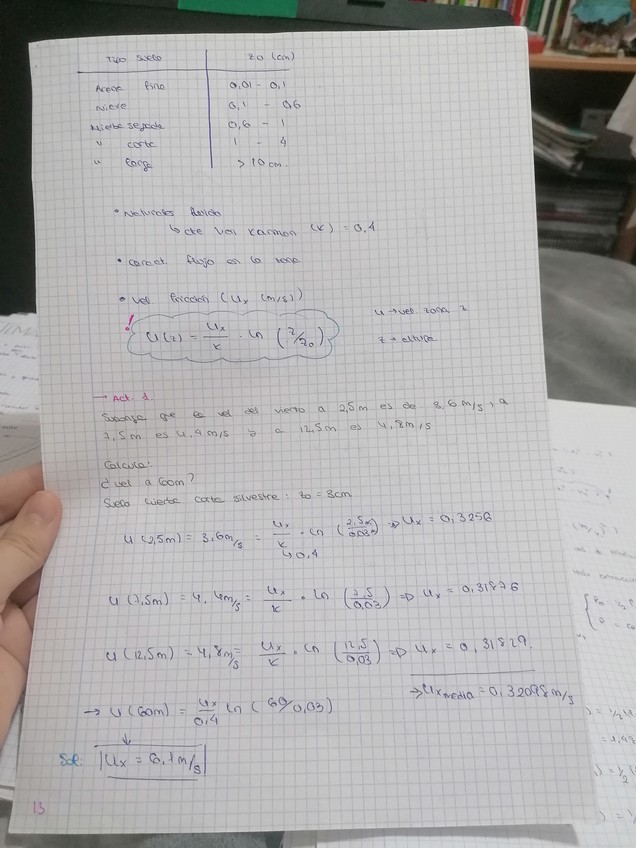 Tipo suelo zo (cm)
Arena fina 0,01 - 0,1
Nieve 0,1 - 0,6
Hierba segada 0,6 - 1
" corta 1 - 4
" larga > 10 cm.
• Naturales fluido
↳ cte Von Karman (K) = 0,4
• caract. flujo en la zona
• vel fricción (Ux (m/s))
! U(z) = Ux/K · ln (z/zo)
u → vel. zona z
z → altura
→ Act 1.
Suponga que la vel del viento a 2,5m es de 3,6 m/s, a
7,5m es 4,4m/s y a 12,5m es 4,8m/s
Calcula:
¿vel a 60m?
Suelo hierba corta silvestre: zo = 3cm
U(2,5m) = 3,6m/s = Ux/K · ln (2,5m/0,03m) => Ux = 0,3256
↳ 0,4
U(7,5m) = 4,4m/s = Ux/K · ln (7,5/0,03) => Ux = 0,31876
U(12,5m) = 4,8m/s = Ux/K · ln (12,5/0,03) => Ux = 0,31829
→ Ux media = 0,32098 m/s
→ U(60m) = Ux/0,4 ln (60/0,03)
Sol: Ux = 6,1m/s
13